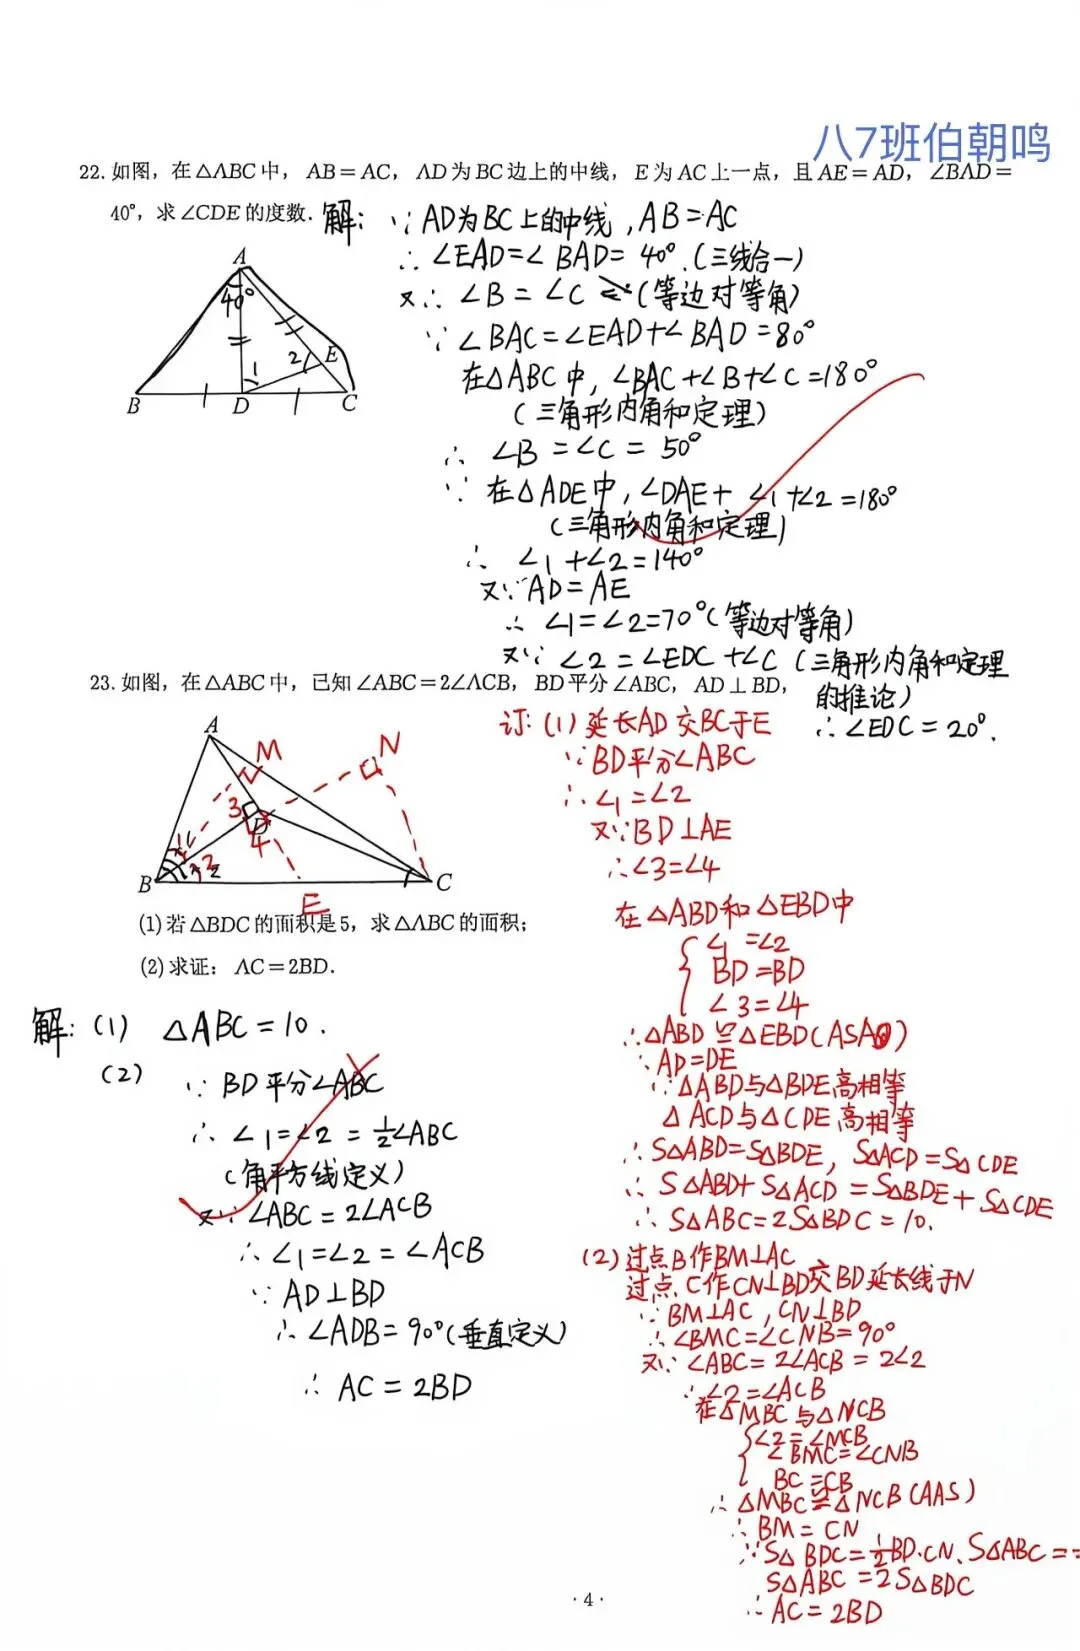 八7班伯朝鸣
22. 如图，在△ABC中，AB=AC，AD为BC边上的中线，E为AC上一点，且AE=AD，∠BAD=
40°，求∠CDE的度数.
解：∵AD为BC上的中线，AB=AC
∴∠EAD=∠BAD=40°.(三线合一)
又∴∠B=∠C(等边对等角)
∵∠BAC=∠EAD+∠BAD=80°
在△ABC中，∠BAC+∠B+∠C=180°
(三角形内角和定理)
∴∠B=∠C=50°
∵在△ADE中，∠DAE+∠1+∠2=180°
(三角形内角和定理)
∴∠1+∠2=140°
又∵AD=AE
∴∠1=∠2=70°(等边对等角)
又∵∠2=∠EDC+∠C(三角形内角和定理
的推论)
∴∠EDC=20°.
A
40°
2
E
1
B
D
C
23. 如图，在△ABC中，已知∠ABC=2∠ACB，BD平分∠ABC，AD⊥BD，
A
M
N
3
D
4
1
2
B
E
C
(1)若△BDC的面积是5，求△ABC的面积；
(2)求证：AC=2BD.
解：(1) △ABC=10.
(2)
∵BD平分∠ABC
∴∠1=∠2=½∠ABC
(角平方线定义)
又∵∠ABC=2∠ACB
∴∠1=∠2=∠ACB
∵AD⊥BD
∴∠ADB=90°(垂直定义)
∴AC=2BD
订：(1)延长AD交BC于E
∵BD平分∠ABC
∴∠1=∠2
又∵BD⊥AE
∴∠3=∠4
在△ABD和△EBD中
∠1=∠2
BD=BD
∠3=∠4
∴△ABD≌△EBD(ASA)
∴AD=DE
∵△ABD与△BDE高相等
△ACD与△CDE高相等
∴S△ABD=S△BDE，S△ACD=S△CDE
∴S△ABD+S△ACD=S△BDE+S△CDE
∴S△ABC=2S△BDC=10.
(2)过点B作BM⊥AC
过点C作CN⊥BD交BD延长线于N
∵BM⊥AC，CN⊥BD
∴∠BMC=∠CNB=90°
又∵∠ABC=2∠ACB=2∠2
∴∠2=∠ACB
在△MBC与△NCB
∠2=∠MCB
∠BMC=∠CNB
BC=CB
∴△MBC≌△NCB(AAS)
∴BM=CN
∵S△BDC=½BD·CN、S△ABC=
S△ABC=2S△BDC
∴AC=2BD
·4·